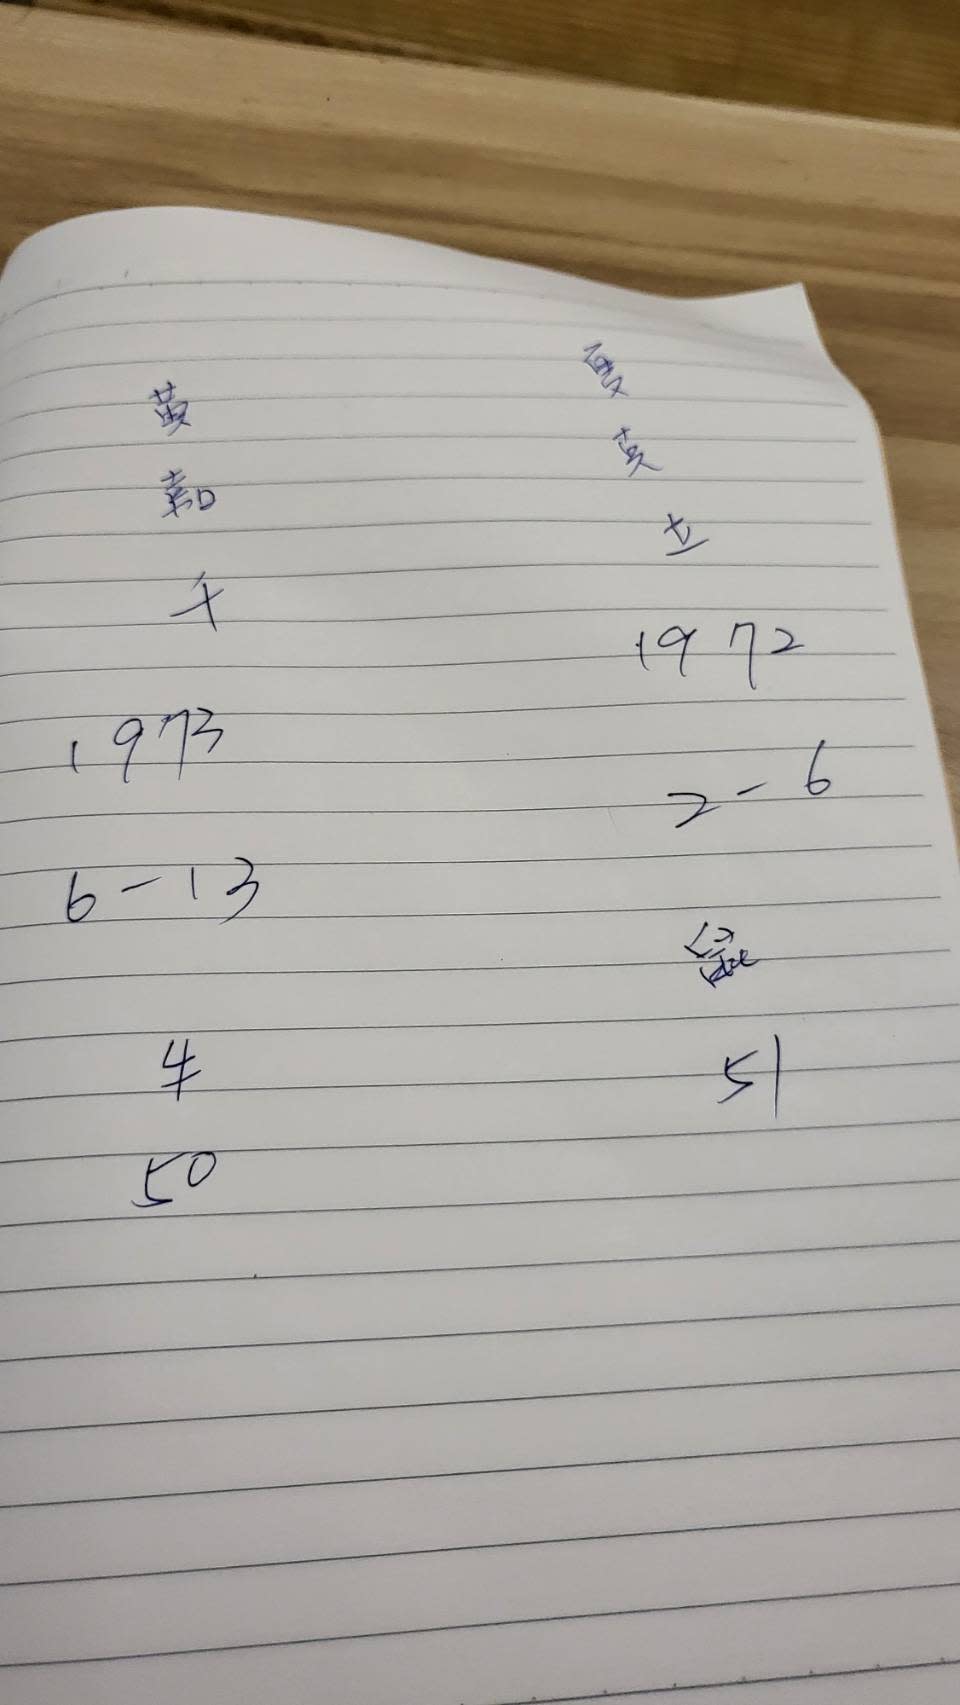 黃
千
1973
6-13
牛
50
夏
真
立
1972
2-6
鼠
51